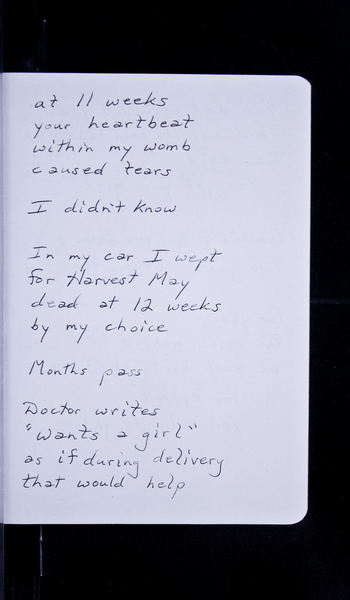 at 11 weeks
your heartbeat
within my womb
caused tears
I didn't know
In my car I wept
for Harvest May
dead at 12 weeks
by my choice
Months pass
Doctor writes
"wants a girl"
as if during delivery
that would help